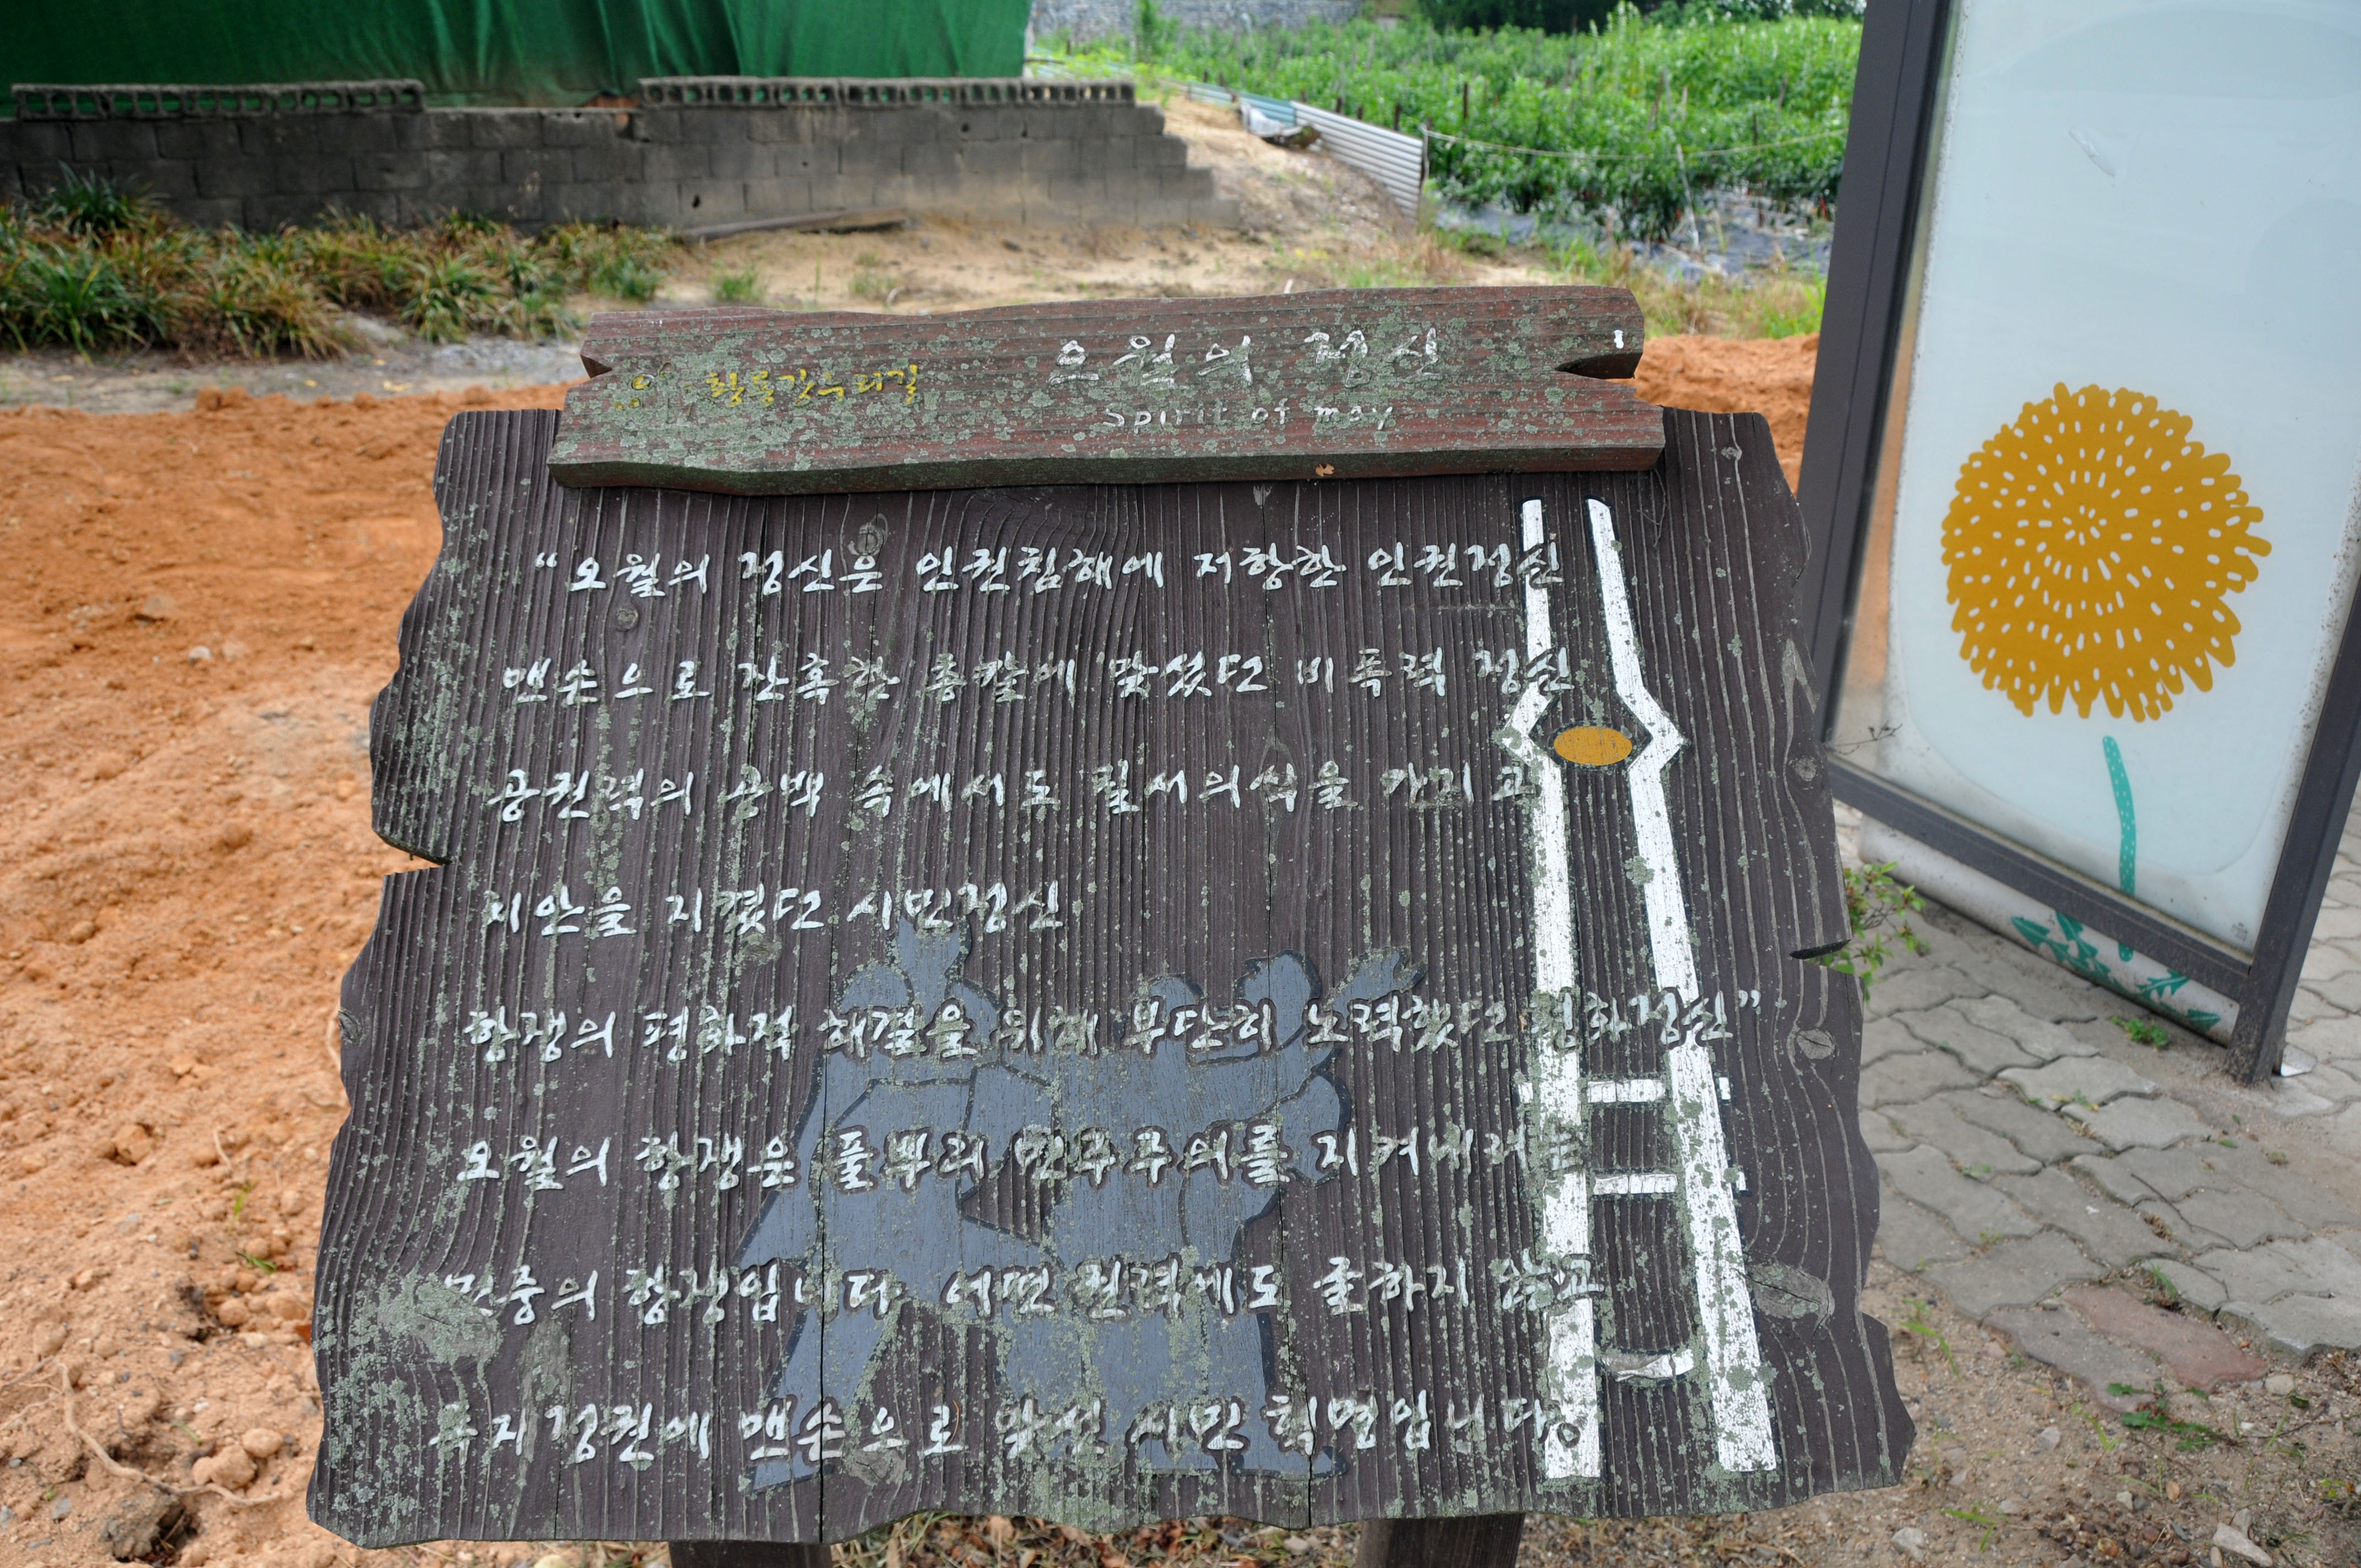 황룡강누리길
오월의 정신
Spirit of may
"오월의 정신은 인권침해에 저항한 인권정신
맨손으로 잔혹한 총칼에 맞섰던 비폭력 정신
공권력의 공백 속에서도 질서의식을 가지고
치안을 지켰던 시민정신
항쟁의 평화적 해결을 위해 부단히 노력했던 평화정신"
오월의 항쟁은 풀뿌리 민주주의를 지켜내려는
민중의 항쟁입니다 어떤 권력에도 굴하지 않고
독재정권에 맨손으로 맞선 시민 혁명입니다。